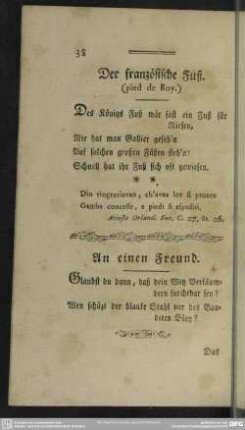 38
Der französische Fuß.
(pied de Roy.)
Des Königs Fuß wär fast ein Fuß für
Riesen,
Nie hat man Gallier geseh'n
Auf solchen großen Füßen steh'n:
Schnell hat ihr Fuß sich oft gewiesen.
* *
Dio ringraziavan, ch'avea lor sì pronte
Gambe concesse, e piedi sì espediti.
Ariosto Orland. Fur. C. 27. St. 26.
An einen Freund.
Glaubst du dann, daß dein Witz Verläum-
dern furchtbar sey?
Wen schüzt der blanke Stahl vor des Ban-
diten Bley?
Das
DFG